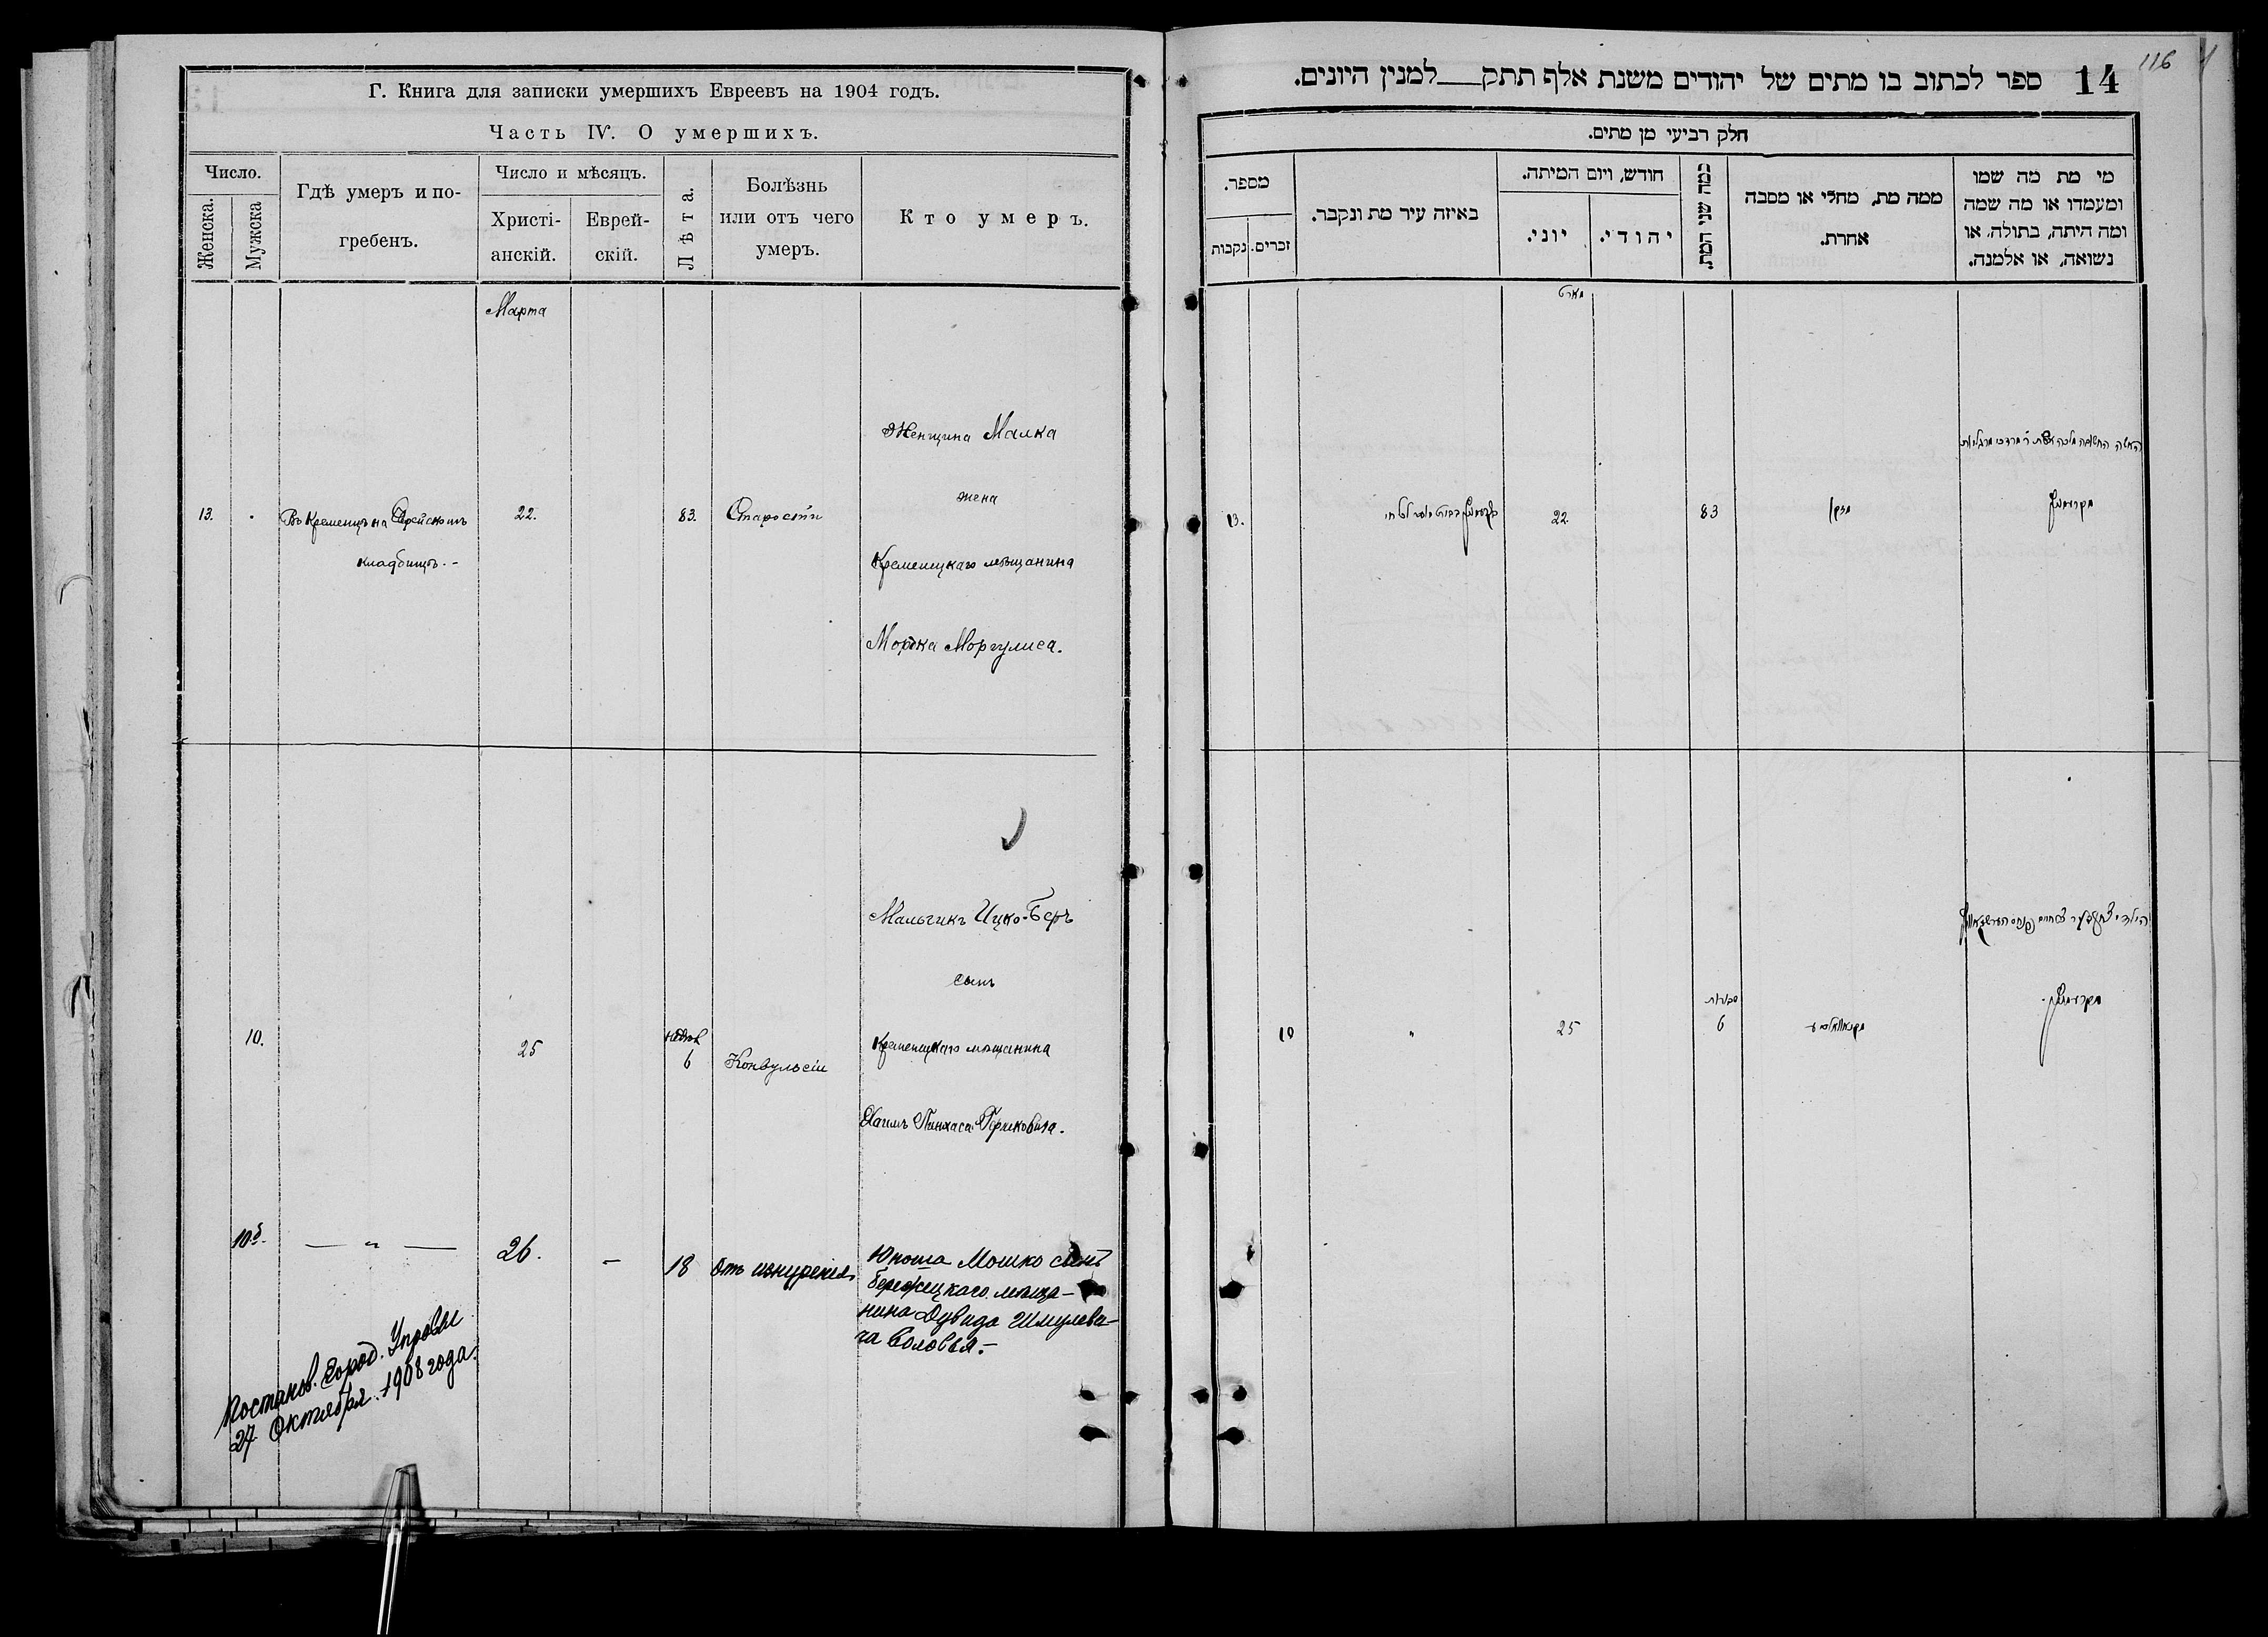 Г. Книга для записки умершихъ Евреевъ на 1904 годъ.
Часть IV. О умершихъ.
Число.
Женска.
Мужска
Гдѣ умеръ и по-
гребенъ.
Число и мѣсяцъ.
Христі-
анскій.
Еврей-
скій.
Лѣта.
Болѣзнь
или отъ чего
умеръ.
Кто умеръ.
Марта
13.
Въ Кременцѣ на Еврейскомъ
кладбищѣ.-
22.
83.
Старости
Женщина Малка
жена
Кременецкаго мѣщанина
Моргулиса.
10.
25
6
Конвульсіи
Мальчикъ Ицко-Беръ
сынъ
Кременецкаго мѣщанина
Хаимъ Пинхаса
10б.
— „ —
26.
—
18
Отъ изнуренія
Юноша Мошко сынъ
бережецкаго мѣща-
нина Дувида Шмулеви-
ча Соловья.-
Постанов. Город. Управы
27 Октября 1908 года.
116
14
ספר לכתוב בו מתים של יהודים משנת אלף תתק__למנין היונים.
חלק רביעי מן מתים.
מי מת מה שמו
ומעמדו או מה שמה
ומה היתה, בתולה, או
נשואה, או אלמנה.
ממה מת, מחלי או מסבה
אחרת.
כמה שני המת.
חודש, ויום המיתה.
יהודי.
יוני.
באיזה עיר מת ונקבר.
מספר.
זכרים.
נקבות
מארט
האשה החשובה מלכה אשת ר' מרדכי מרגליות
קרעמניץ
מזקן
83
22
13.
קרעמניץ
6
25
„
10